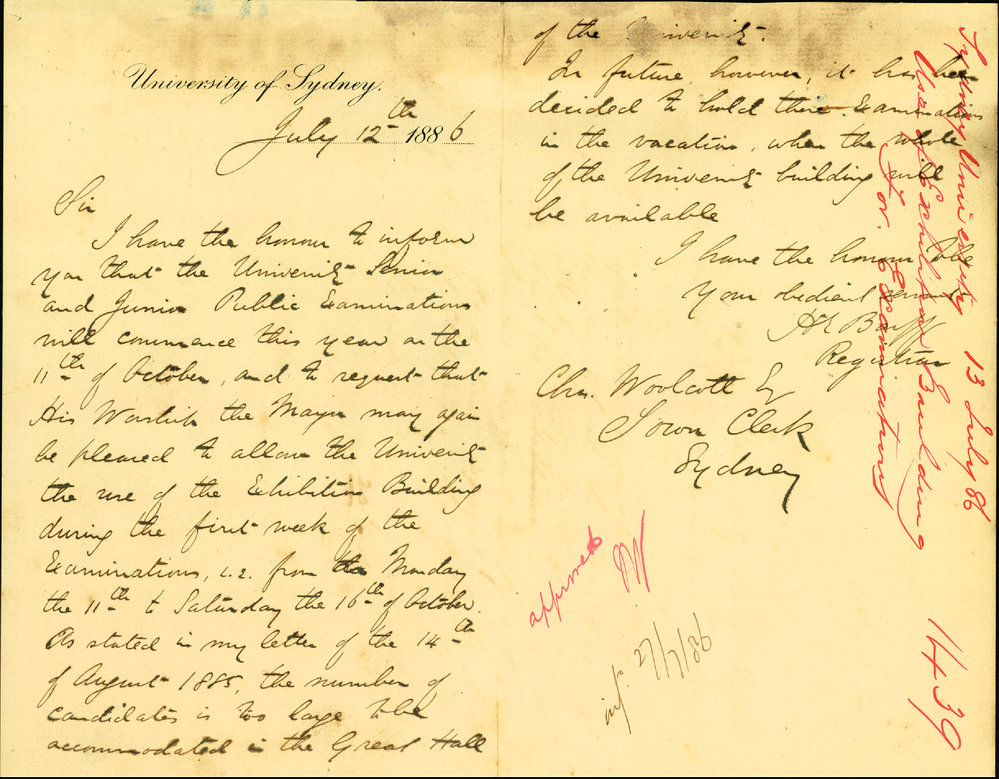 University of Sydney.
July 12th 1886
Sir
I have the honour to inform
you that the University Senior
and Junior Public Examinations
will commence this year on the
11th of October, and to request that
His Worship the Mayor may again
be pleased to allow the University
the use of the Exhibition Building
during the first week of the
Examinations, i.e. from the Monday
the 11th to Saturday the 16th of October.
As stated in my letter of the 14th
of August 1885, the number of
candidates is too large to be
accommodated in the Great Hall
of the University.
In future, however, it has been
decided to hold these Examinations
in the vacation, when the whole
of the University building will
be available
I have the honour to be
Your obedient servant
H E Barff
Registrar
Chas. Woolcott Esq
Town Clerk
Sydney
approved
inf. 27/7/86
Sydney University 13 July 86
Use of Exhibition Building
for Examinations
1439